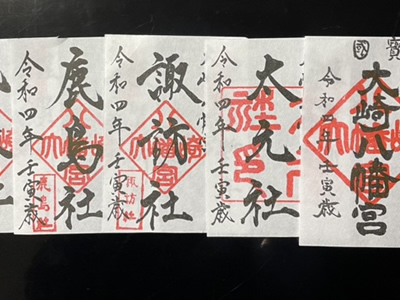 寶
國
大崎八幡宮
令和四年 壬寅歳
大元社
令和四年 壬寅歳
諏訪社
令和四年 壬寅歳
諏訪社
鹿島社
令和四年 壬寅歳
鹿島社